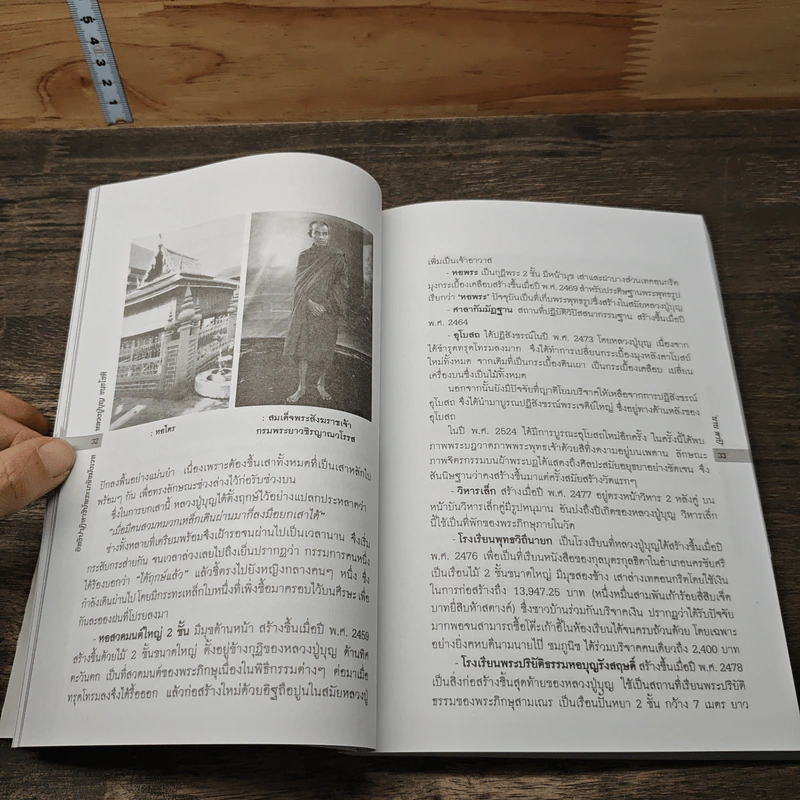 5 4 3 2 1
: หอไตร
: สมเด็จพระสังฆราชเจ้า
กรมพระยาวชิรญาณวโรรส
ปักลงพื้นอย่างแม่นยำ เนื่องเพราะต้องขึ้นเสาทั้งหมดที่เป็นเสาหลักไป
พร้อมๆ กัน เพื่อทรงลักษณะช่วงล่างไว้ก่อรับช่วงบน
ซึ่งในการยกเสานี้ หลวงปู่บุญได้ตั้งฤกษ์ไว้อย่างแปลกประหลาดว่า
"เมื่อมีคนสวมหมวกเหล็กเดินผ่านมาก็ลงมือยกเสาได้"
ช่างทั้งหลายที่เตรียมพร้อมจึงเฝ้ารอจนผ่านไปเป็นเวลานาน จึงเริ่ม
กระสับกระส่ายกัน จนเวลาล่วงเลยไปถึงเย็นปรากฏว่า กรรมการคนหนึ่ง
ได้ร้องบอกว่า "ได้ฤกษ์แล้ว" แล้วชี้ตรงไปยังหญิงกลางคนๆ หนึ่ง ซึ่ง
กำลังเดินผ่านไป โดยมีกระทะเหล็กใบหนึ่งที่เพิ่งซื้อมาครอบไว้บนศีรษะ เพื่อ
กันละอองฝนที่โปรยลงมา
- หอสวดมนต์ใหญ่ 2 ชั้น มีมุขด้านหน้า สร้างขึ้นเมื่อปี พ.ศ. 2459
สร้างขึ้นด้วยไม้ 2 ชั้นขนาดใหญ่ ตั้งอยู่ข้างกุฏิของหลวงปู่บุญ ด้านทิศ
ตะวันตก เป็นที่สวดมนต์ของพระภิกษุเนื่องในพิธีกรรมต่างๆ ต่อมาเมื่อ
ทรุดโทรมลงจึงได้รื้อออก แล้วก่อสร้างใหม่ด้วยอิฐถือปูนในสมัยหลวงปู่
หลวงปู่บุญ ขันธโชติ
32
เพิ่มเป็นเจ้าอาวาส
- หอพระ เป็นกุฏิพระ 2 ชั้น มีหน้ามุข เสาและฝาบางส่วนเทคอนกรีต
มุงกระเบื้องเคลือบสร้างขึ้นเมื่อปี พ.ศ. 2469 สำหรับประดิษฐานพระพุทธรูป
เรียกว่า "หอพระ" ปัจจุบันเป็นที่เก็บพระพุทธรูปซึ่งสร้างในสมัยหลวงปู่บุญ
- ศาลากัมมัฏฐาน สถานที่ปฏิบัติวิปัสสนากรรมฐาน สร้างขึ้นเมื่อปี
พ.ศ. 2464
- อุโบสถ ได้ปฏิสังขรณ์ในปี พ.ศ. 2473 โดยหลวงปู่บุญ เนื่องจาก
ได้ชำรุดทรุดโทรมลงมาก จึงได้ทำการเปลี่ยนกระเบื้องมุงหลังคาโบสถ์
ใหม่ทั้งหมด จากเดิมที่เป็นกระเบื้องดินเผา เป็นกระเบื้องเคลือบ เปลี่ยน
เครื่องบนซึ่งเป็นไม้ทั้งหมด
นอกจากนั้นยังมีปัจจัยที่ญาติโยมบริจาคให้เหลือจากการปฏิสังขรณ์
อุโบสถ จึงได้นำมาบูรณปฏิสังขรณ์พระเจดีย์ใหญ่ ซึ่งอยู่ทางด้านหลังของ
อุโบสถ
ในปี พ.ศ. 2524 ได้มีการบูรณะอุโบสถใหม่อีกครั้ง ในครั้งนี้ได้พบ
ภาพพระบฎวาดภาพพระพุทธเจ้าด้วยสีที่งดงามอยู่บนเพดาน ลักษณะ
ภาพจิตรกรรมบนผ้าพระบฎได้แสดงถึงศิลปะสมัยอยุธยาอย่างชัดเจน จึง
สันนิษฐานว่าคงสร้างขึ้นมาแต่ครั้งสมัยสร้างวัดแรกๆ
- วิหารเล็ก สร้างเมื่อปี พ.ศ. 2477 อยู่ตรงหน้าวิหาร 2 หลังคู่ บน
หน้าบันวิหารเล็กคู่มีรูปหนุมาน อันบ่งถึงปีเกิดของหลวงปู่บุญ วิหารเล็ก
นี้ใช้เป็นที่พักของพระภิกษุภายในวัด
- โรงเรียนพุทธวิถีนายก เป็นโรงเรียนที่หลวงปู่บุญได้สร้างขึ้นเมื่อปี
พ.ศ. 2476 เพื่อเป็นที่เรียนหนังสือของกุลบุตรกุลธิดาในอำเภอนครชัยศรี
เป็นเรือนไม้ 2 ชั้นขนาดใหญ่ มีมุขสองข้าง เสาล่างเทคอนกรีตโดยใช้เงิน
ในการก่อสร้างถึง 13,947.25 บาท (หนึ่งหมื่นสามพันเก้าร้อยสี่สิบเจ็ด
บาทยี่สิบห้าสตางค์) ซึ่งชาวบ้านร่วมกันบริจาคเงิน ปรากฏว่าได้รับปัจจัย
มากพอจนสามารถซื้อโต๊ะเก้าอี้ในห้องเรียนได้จนครบถ้วนด้วย โดยเฉพาะ
อย่างยิ่งคหบดีนามนายไป๋ ชมภูนิช ได้ร่วมบริจาคคนเดียวถึง 2,400 บาท
- โรงเรียนพระปริยัติธรรมหอบุญรังสฤษดิ์ สร้างขึ้นเมื่อปี พ.ศ. 2478
เป็นสิ่งก่อสร้างชิ้นสุดท้ายของหลวงปู่บุญ ใช้เป็นสถานที่เรียนพระปริยัติ
ธรรมของพระภิกษุสามเณร เป็นเรือนปั้นหยา 2 ชั้น กว้าง 7 เมตร ยาว
33